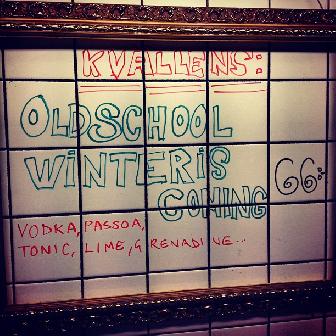 KVÄLLENS:
OLDSCHOOL
WINTER IS
COMING
66:-
VODKA, PASSOA,
TONIC, LIME, GRENADINE...